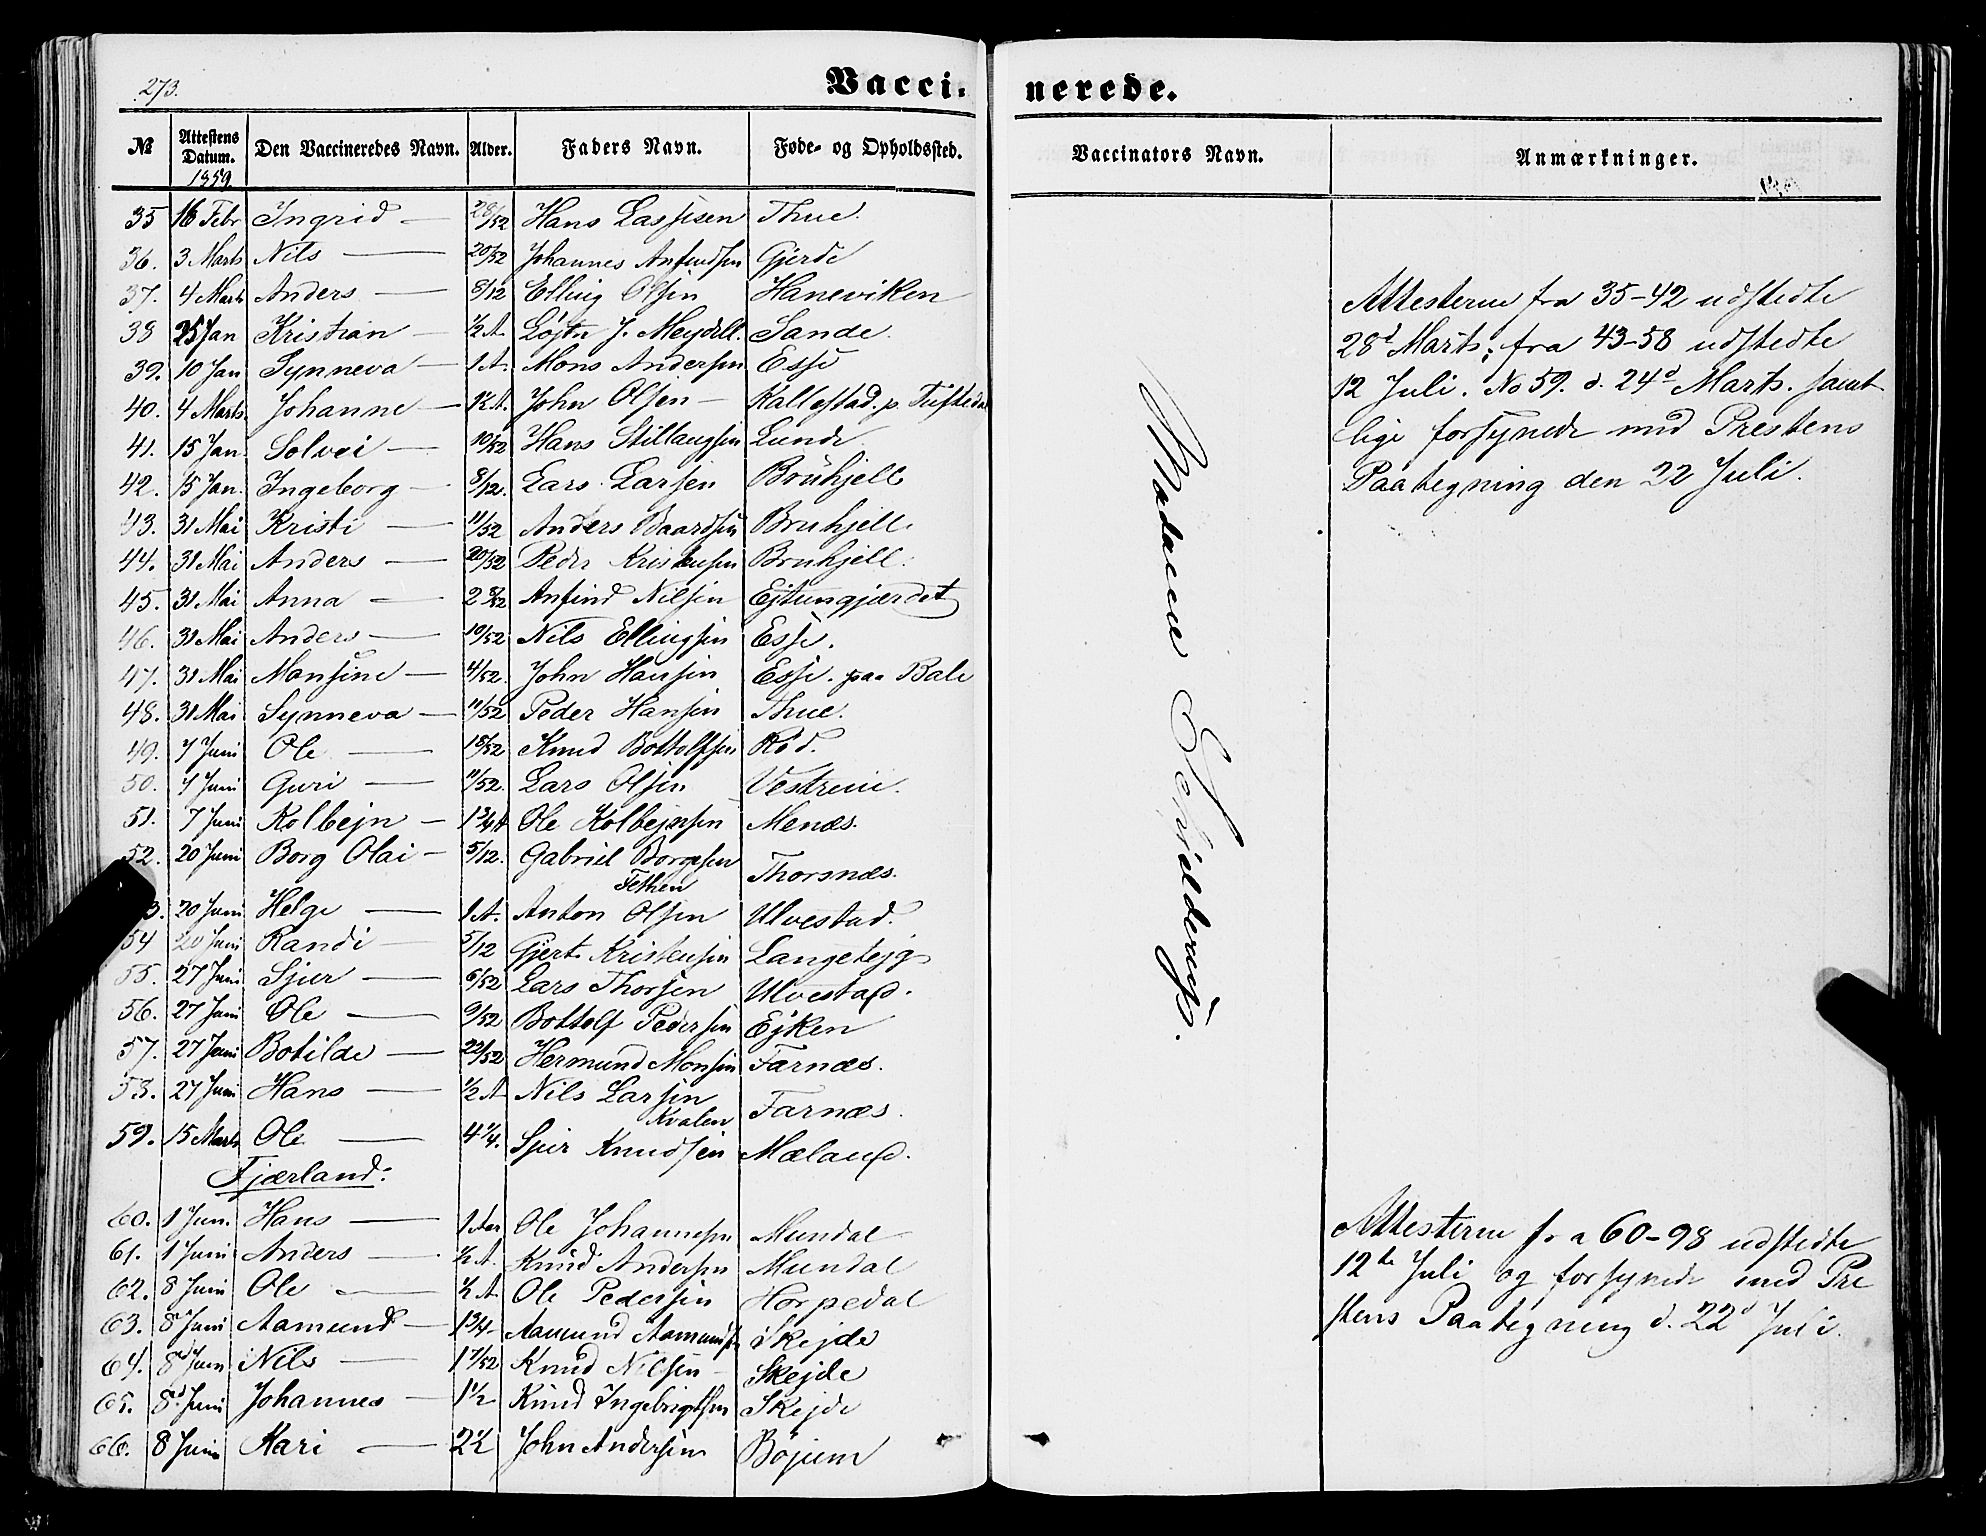 273.
Vacci- nerede.
№ Attestens Datum. Den Vaccineredes Navn. Alder. Faders Navn. Føde- og Opholdssted. Vaccinators Navn. Anmærkninger.
1859
35 16 Febr Ingrid — 28/52 Hans Lassesen Thue.
36. 3 Marts Nils — 20/52 Johannes Anfindsen Gjerde
37. 4 Marts Anders — 8/12 Elling Olsen Haneviken
38 25 Jan Kristian — ½ A. Løjtn J. Meydell. Sande.
39. 10 Jan Synneva — 1 A. Mons Andersen Esse
40. 4 Marts. Johanne — 1½ A. John Olsen — Kallestad. p. Tuftedal
41. 15 Jan. Solvei — 10/52 Hans Stillaugsen Lunde.
42. 15 Jan. Ingeborg — 8/12. Lars Larsen Bruhjell
43. 31 Mai Kristi — 11/52 Anders Baardsen Bruhjell.
44. 31 Mai Anders — 20/52 Peder Kristensen Bruhjell.
45. 31 Mai Anna — 2 8/12 Anfind Nilsen Ejtungjærdet
46. 31 Mai Anders — 19/52 Nils Ellingsen Esse.
47. 31 Mai Monsine — 4/52. John Hansen Esse. paa Bale
48. 31 Mai Synneva — 11/52 Peder Hansen Thue.
49. 7 Juni Ole — 18/52 Knud Bottolfsen Rød.
50. 7 Juni Guri — 11/52. Lars Olsen Vestreim.
51. 7 Juni Kolbejn — 1¾ A Ole Kolbejnsen Menæs.
52. 20 Juni Borg Olai — 5/12. Gabriel Borgesen
Fethen Thorsnæs.
3. 20 Juni Helge — 1 A. Anton Olsen Ulvestad.
54 20 Juni Randi — 5/12 Gjert Kristensen Langetejg
55. 27 Juni Sjur — 6/52 Lars Thorsen Ulvestad.
56. 27 Juni Ole — 9/52 Bottolf Pedersen Ejken
57. 27 Juni Botilde — 22/52 Hermund Monsen Farnæs.
58. 27 Juni Hans — ½ A Nils Larsen
Kvalen Farnæs.
59. 15 Marts Ole — 4¼. Sjur Knudsen Mæland.
Fjærland:
60. 1 Jun. Hans — 1 Aar Ole Johannesen Mundal
61. 1 Juni Anders — ½ A. Knud Andersen Mundal
62. 8 Juni Ole — ½ A Ole Pedersen Horpedal
63. 8 Juni Aamund — 1¾ Aamund Aamunds. Skejde
64. 8 Juni Nils — 1 7/52 Knud Nilsen — Skejde
65. 8 Juni Johannes — 1½ Knud Ingebrigtsen Skejde
66. 8 Juni Kari — 2½ John Andersen Bøjum
Madame Schilderup.
Attesterne fra 35-42 udstedte
28d Marts; fra 43-58 udstedte
12 Juli. No 59. d. 24d Marts. samt
lige forsynede med Prestens
Paategning den 22 Juli.
Attesterne fra 60-98 udstedte
12te Juli og forsynede med Pre
stens Paategning d. 22d Juli.